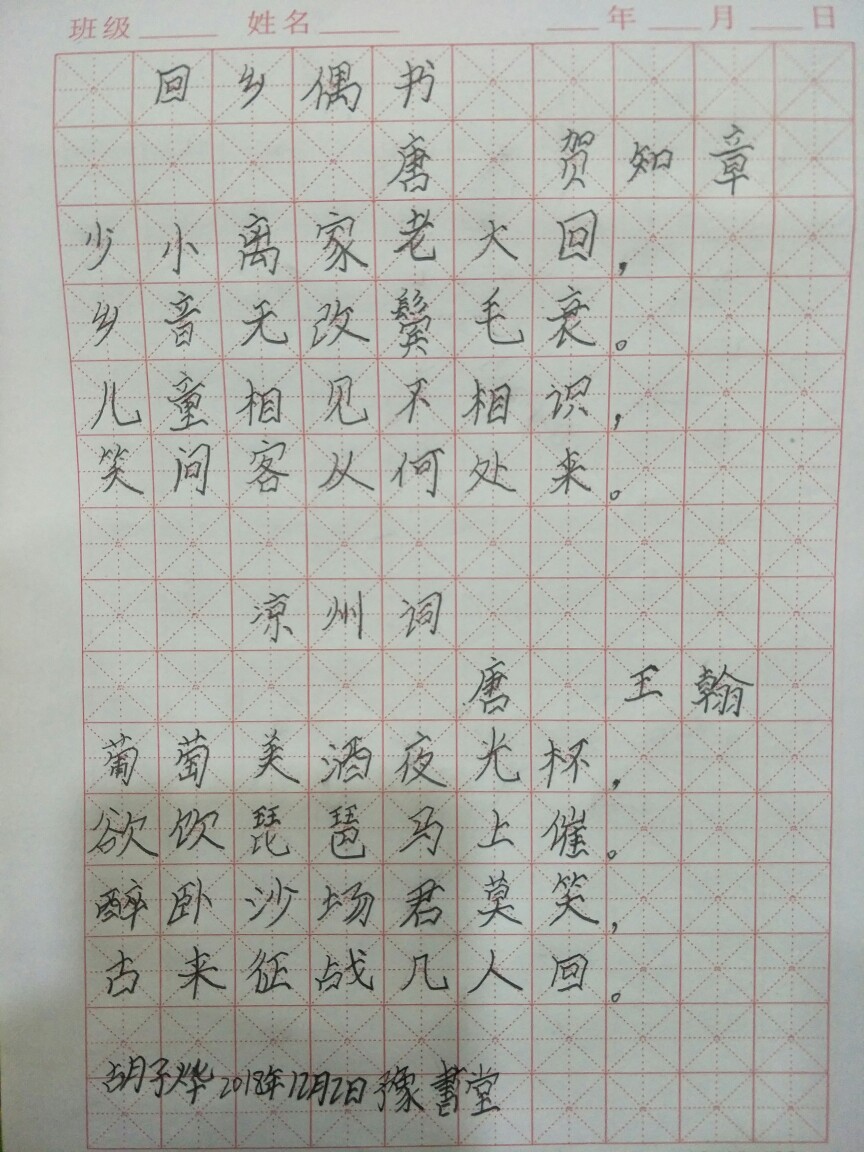 班级 姓名 年 月 日
回乡偶书
唐 贺知章
少小离家老大回，
乡音无改鬓毛衰。
儿童相见不相识，
笑问客从何处来。
凉州词
唐 王翰
葡萄美酒夜光杯，
欲饮琵琶马上催。
醉卧沙场君莫笑，
古来征战几人回。
胡子烨 2018年12月2日 豫書堂